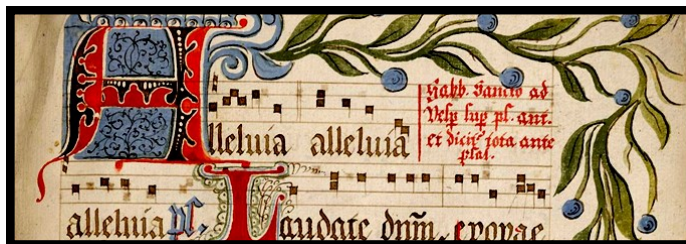 Alleluia alleluia
Sabb. sancto ad
Vesp. sup ps. ant.
et dicit tota ante
psal.
alleluia ps. Laudate dnm̄